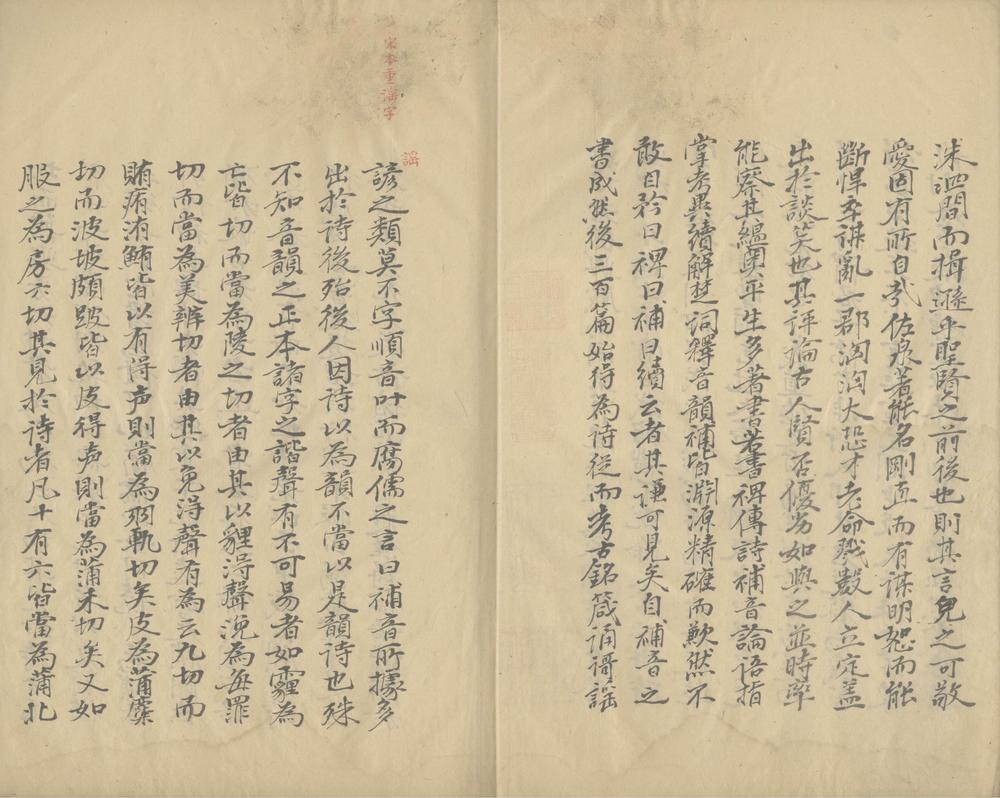 洙泗間而揖遜乎聖賢之前後也則其言皃之可敬
愛固有所自哉佐泉著能名剛直而有謀明恕而能
斷悍卒謀亂一郡洶洶大恐才老命戮數人立定盖
出於談笑也其評論古人賢否優劣如與之並時率
能察其緼奥平生多著書若書裨傳詩補音論语指
掌考異續解楚詞釋音韻補皆淵源精確而歉然不
敢自矜曰裨曰補曰續云者其谦可見矣自補音之
書成然後三百篇始得為诗從而考古銘箴诵謌謡
諺之類莫不字順音叶而腐儒之言曰補音所據多
出於诗後殆後人因诗以為韻不當以是韻诗也殊
不知音韻之正本諸字之諧聲有不可易者如霾為
亡皆切而當為陵之切者由其以貍淂聲浼為每罪
切而當為美辨切者由其以免淂聲有為云九切而
賄痏洧鮪皆以有得声則當為羽軌切矣皮為蒲麋
切而波坡頗跛皆以皮得声則當為蒲禾切矣又如
服之為房六切其見於诗者凡十有六皆當為蒲北
謡
宋本重謡字